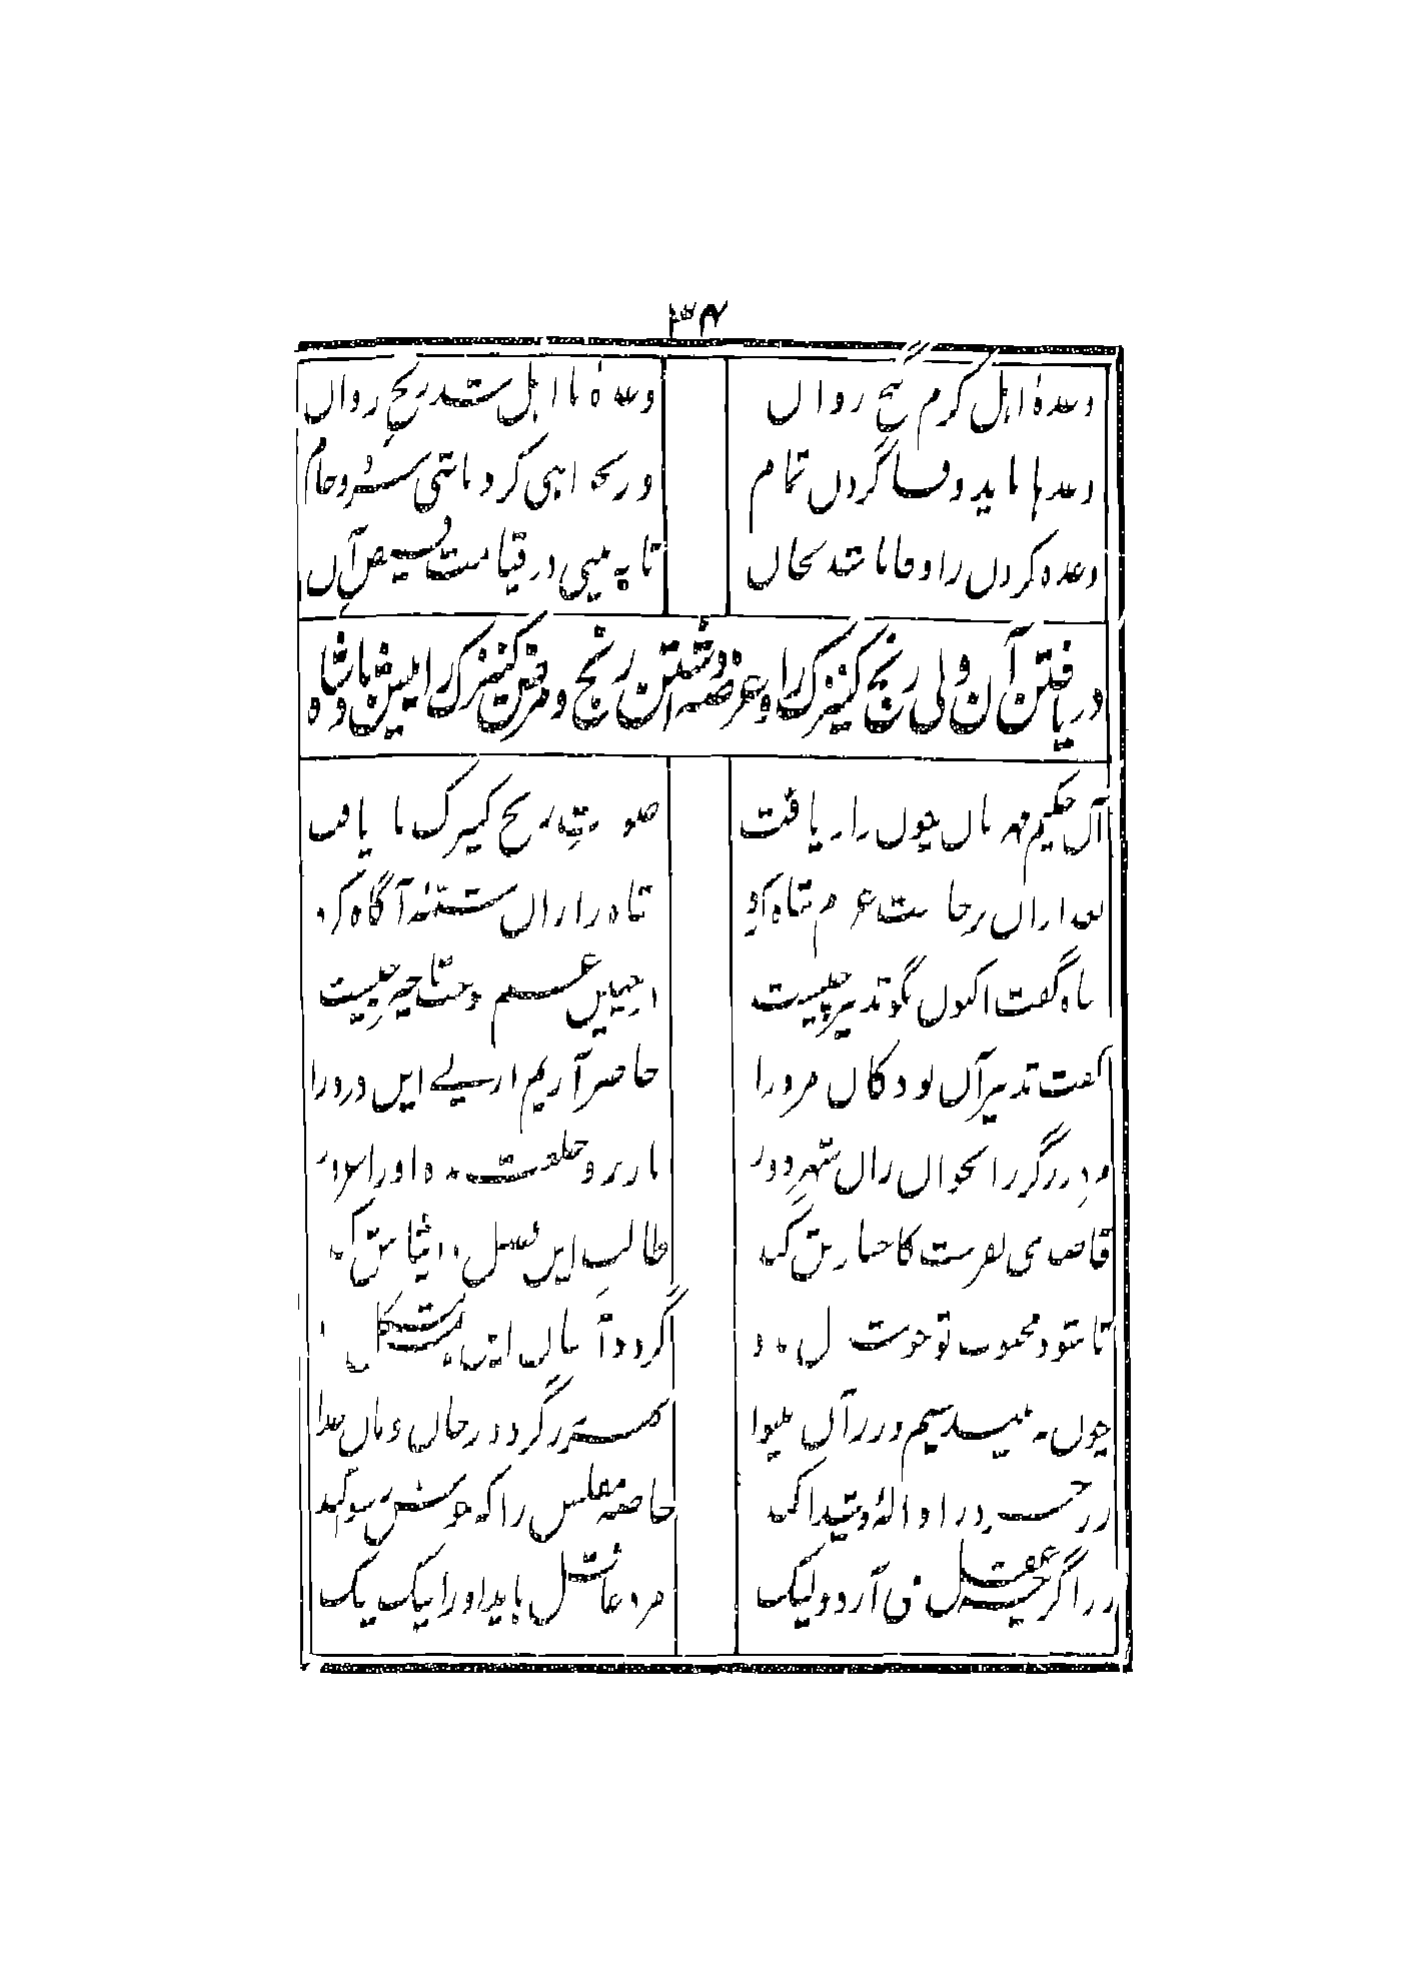 ۳۴
وعدهٔ اہل کرم گنج رواں وعدهٔ نا اہل شد رنج رواں
وعدہا باید وفا کردں تمام ور نخواہی کرد باشی سرد و خام
وعدہ کردں را وفا باشد بجاں تا بہ بینی در قیامت فیض آں
دریافتن آن ولی رنج کنیزک را و عرضه داشتن رنج و مرض کنیزک را پیش پادشاه
آں حکیم مہرباں چوں راز یافت صورت رنج کنیزک باز یافت
بعد ازاں برخاست عزم شاہ کرد شاہ را زاں شمّهٔ آگاہ کرد
شاہ گفت اکنوں بگو تدبیر چیست در چنیں غم موجب تاخیر چیست
گفت تدبیر آں بود کاں مرد را حاضر آریم از پے ایں درد را
مرد زرگر را بخواں زاں شہر دور با زر و خلعت بدہ او را غرور
قاصدی بفرست کاخبارش کند طالب ایں فضل و ایثارش کند
تا شود محبوب تو خوشدل بدو گردد آساں ایں ہمہ مشکل بدو
چوں بہ بیند سیم و زر آں بینوا بہر زر گردد ز خان و ماں جدا
زر خرد را والہ و شیدا کند خاصہ مفلس را کہ خوش رسوا کند
زر اگرچہ عقل می آرد ولیک مرد عاقل باید او را نیک نیک